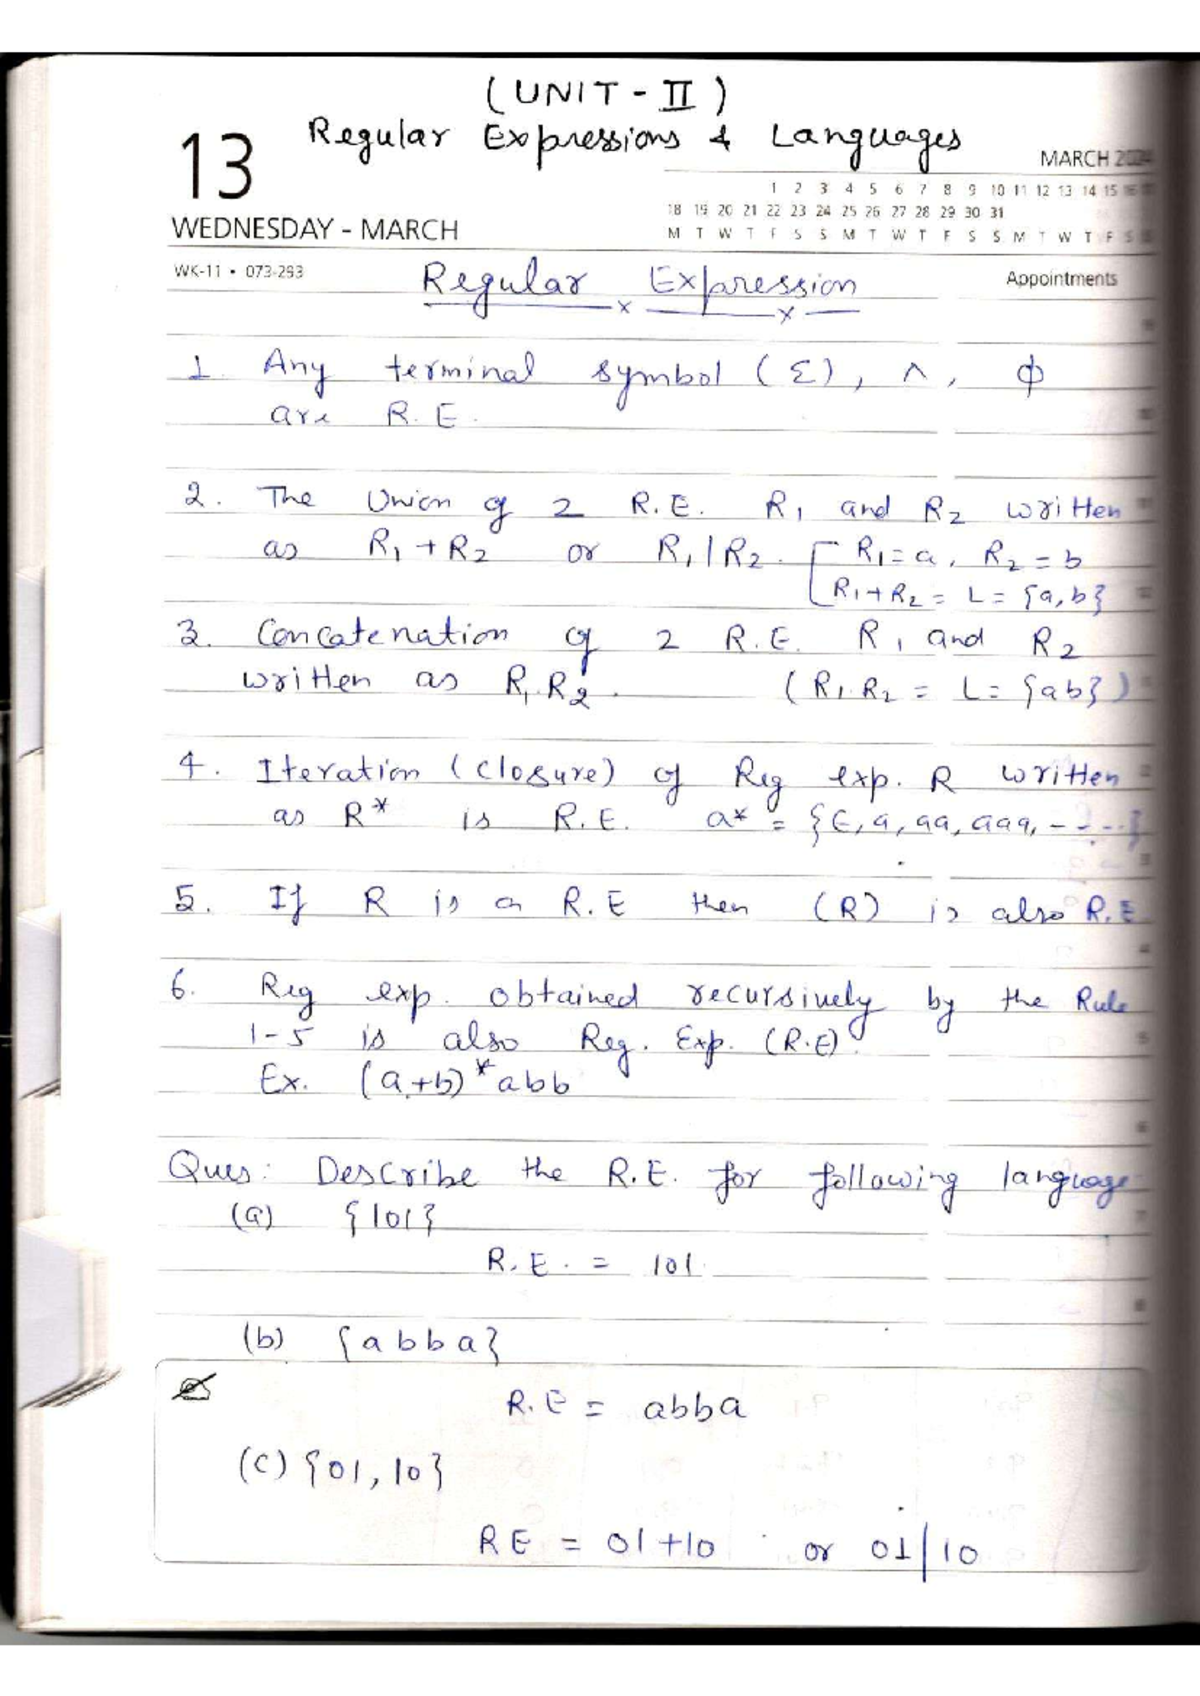 (UNIT - II)
Regular Expressions & Languages
13
MARCH
1 2 3 4 5 6 7 8 9 10 11 12 13 14 15 16 17
18 19 20 21 22 23 24 25 26 27 28 29 30 31
WEDNESDAY - MARCH
M T W T F S S M T W T F S S M T W T F S S
WK-11 • 073-293
Regular Expression
Appointments
1. Any terminal symbol (Σ), ∧, ϕ
are R.E.
2. The Union of 2 R.E. R1 and R2 written
as R1 + R2 or R1 | R2. R1 = a, R2 = b
R1 + R2 = L = {a, b}
3. Concatenation of 2 R.E. R1 and R2
written as R1.R2. (R1.R2 = L = {ab})
4. Iteration (closure) of Reg exp. R written
as R* is R.E. a* = {ϵ, a, aa, aaa, - - - -}
5. If R is a R.E then (R) is also R.E
6. Reg exp. obtained recursively by the Rule
1-5 is also Reg. Exp. (R.E)
Ex. (a+b)*abb
Ques: Describe the R.E. for following language
(a) {101}
R.E. = 101.
(b) {abba}
R.E = abba
(c) {01, 10}
RE = 01+10 or 01|10